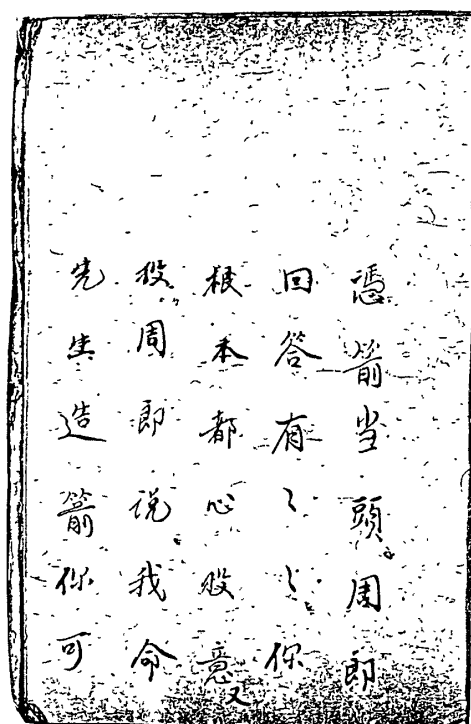 憑箭当頭周郎
回答有〻〻你
根本都心意又
投周郎说我命
先生造箭你可